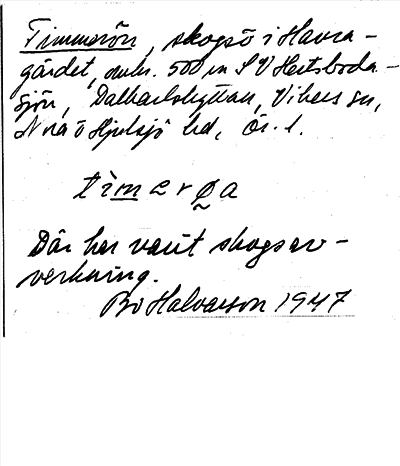 Timmerön, skogsö i Havra-
gärdet, omkr. 500 m SV Hertsboda-
sjön, Dalkarlshyttan, Vikers sn,
Nora o Hjulsjö hd, Ör. l.
tìmərøa
Där har varit skogsav-
verkning.
Bo Halvarson 1947